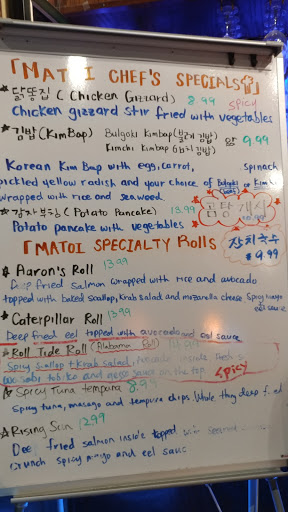 「MATOI CHEF'S SPECIALS」
*닭똥집 (Chicken Gizzard) 8.99 spicy
Chicken gizzard stir fried with vegetables
*김밥 (KimBap) Bulgoki Kimbap (불고기 김밥) 9.99
Kimchi Kimbap (김치 김밥)
Korean Kim Bap with egg, carrot, spinach
pickled yellow radish and your choice of Bulgoki or
wrapped with rice and seaweed
(Potato Pancake) 13.99
Potato pancake with vegetables
잔치국수
$9.99
「MATOI SPECIALTY Rolls
Aaron's Roll 13.99
Deep fried salmon wrapped with rice and avocado
topped with baked scallop, Krab salad and mozzarella cheese Spicy mayo
eel sauce
Caterpillar Roll 13.99
Deep fried eel topped with avocado and eel sauce
Roll Tide Roll (Alabama Roll)
Spicy scallop & Krab salad, Avocado inside
tobiko and sauce on the top Spicy
☆ Spicy Tuna tempura 8.99
Spicy tuna, masago and tempura chips. Whole thing deep
★ Rising Sun 12.99
Deep fried salmon inside topped with
crunch spicy mayo and eel sauc